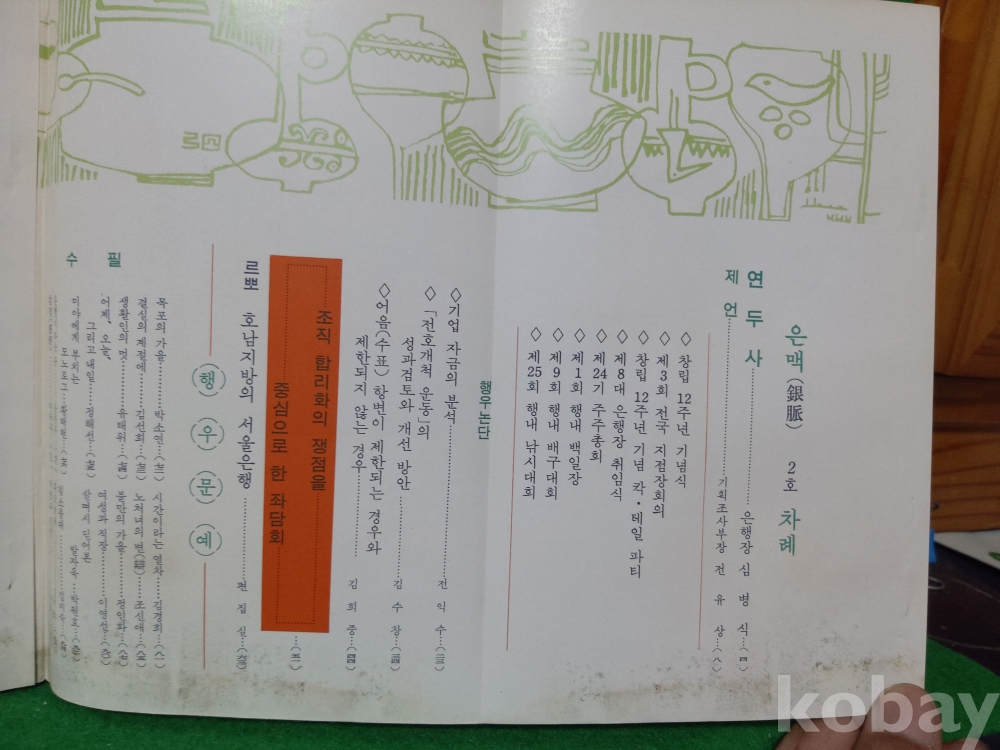 은맥(銀脈) 2호 차례
연두사……………은행장 심 병 식…(四)
제 언……………기획조사부장 전 유 상…(八)
◇ 창립 12주년 기념식
◇ 제3회 전국 지점장회의
◇ 창립 12주년 기념 칵·테일 파티
◇ 제8대 은행장 취임식
◇ 제24기 주주총회
◇ 제1회 행내 백일장
◇ 제9회 행내 배구대회
◇ 제25회 행내 낚시대회
행우논단
◇기업 자금의 분석……………전 익 수…
◇「전호개척 운동」의
성과검토와 개선 방안……………김 수 창…
◇어음(수표) 항변이 제한되는 경우와
제한되지 않는 경우……………김 희 중…
조직 합리화의 쟁점을
중심으로 한 좌담회
르뽀 호남지방의 서울은행……………편 집 실…
행우문예
수 필
목포의 가을……박소연…
결실의 계절에……김선희…
생활인의 멋……유태위…
어제, 오늘,
그리고 내일……정해선…
미아에게 부치는
모노로그
시간이라는 열차……김경희…
노처녀의 변……조신애…
불만의 가을……정인화…
여성과 직장……이영선…
kobay